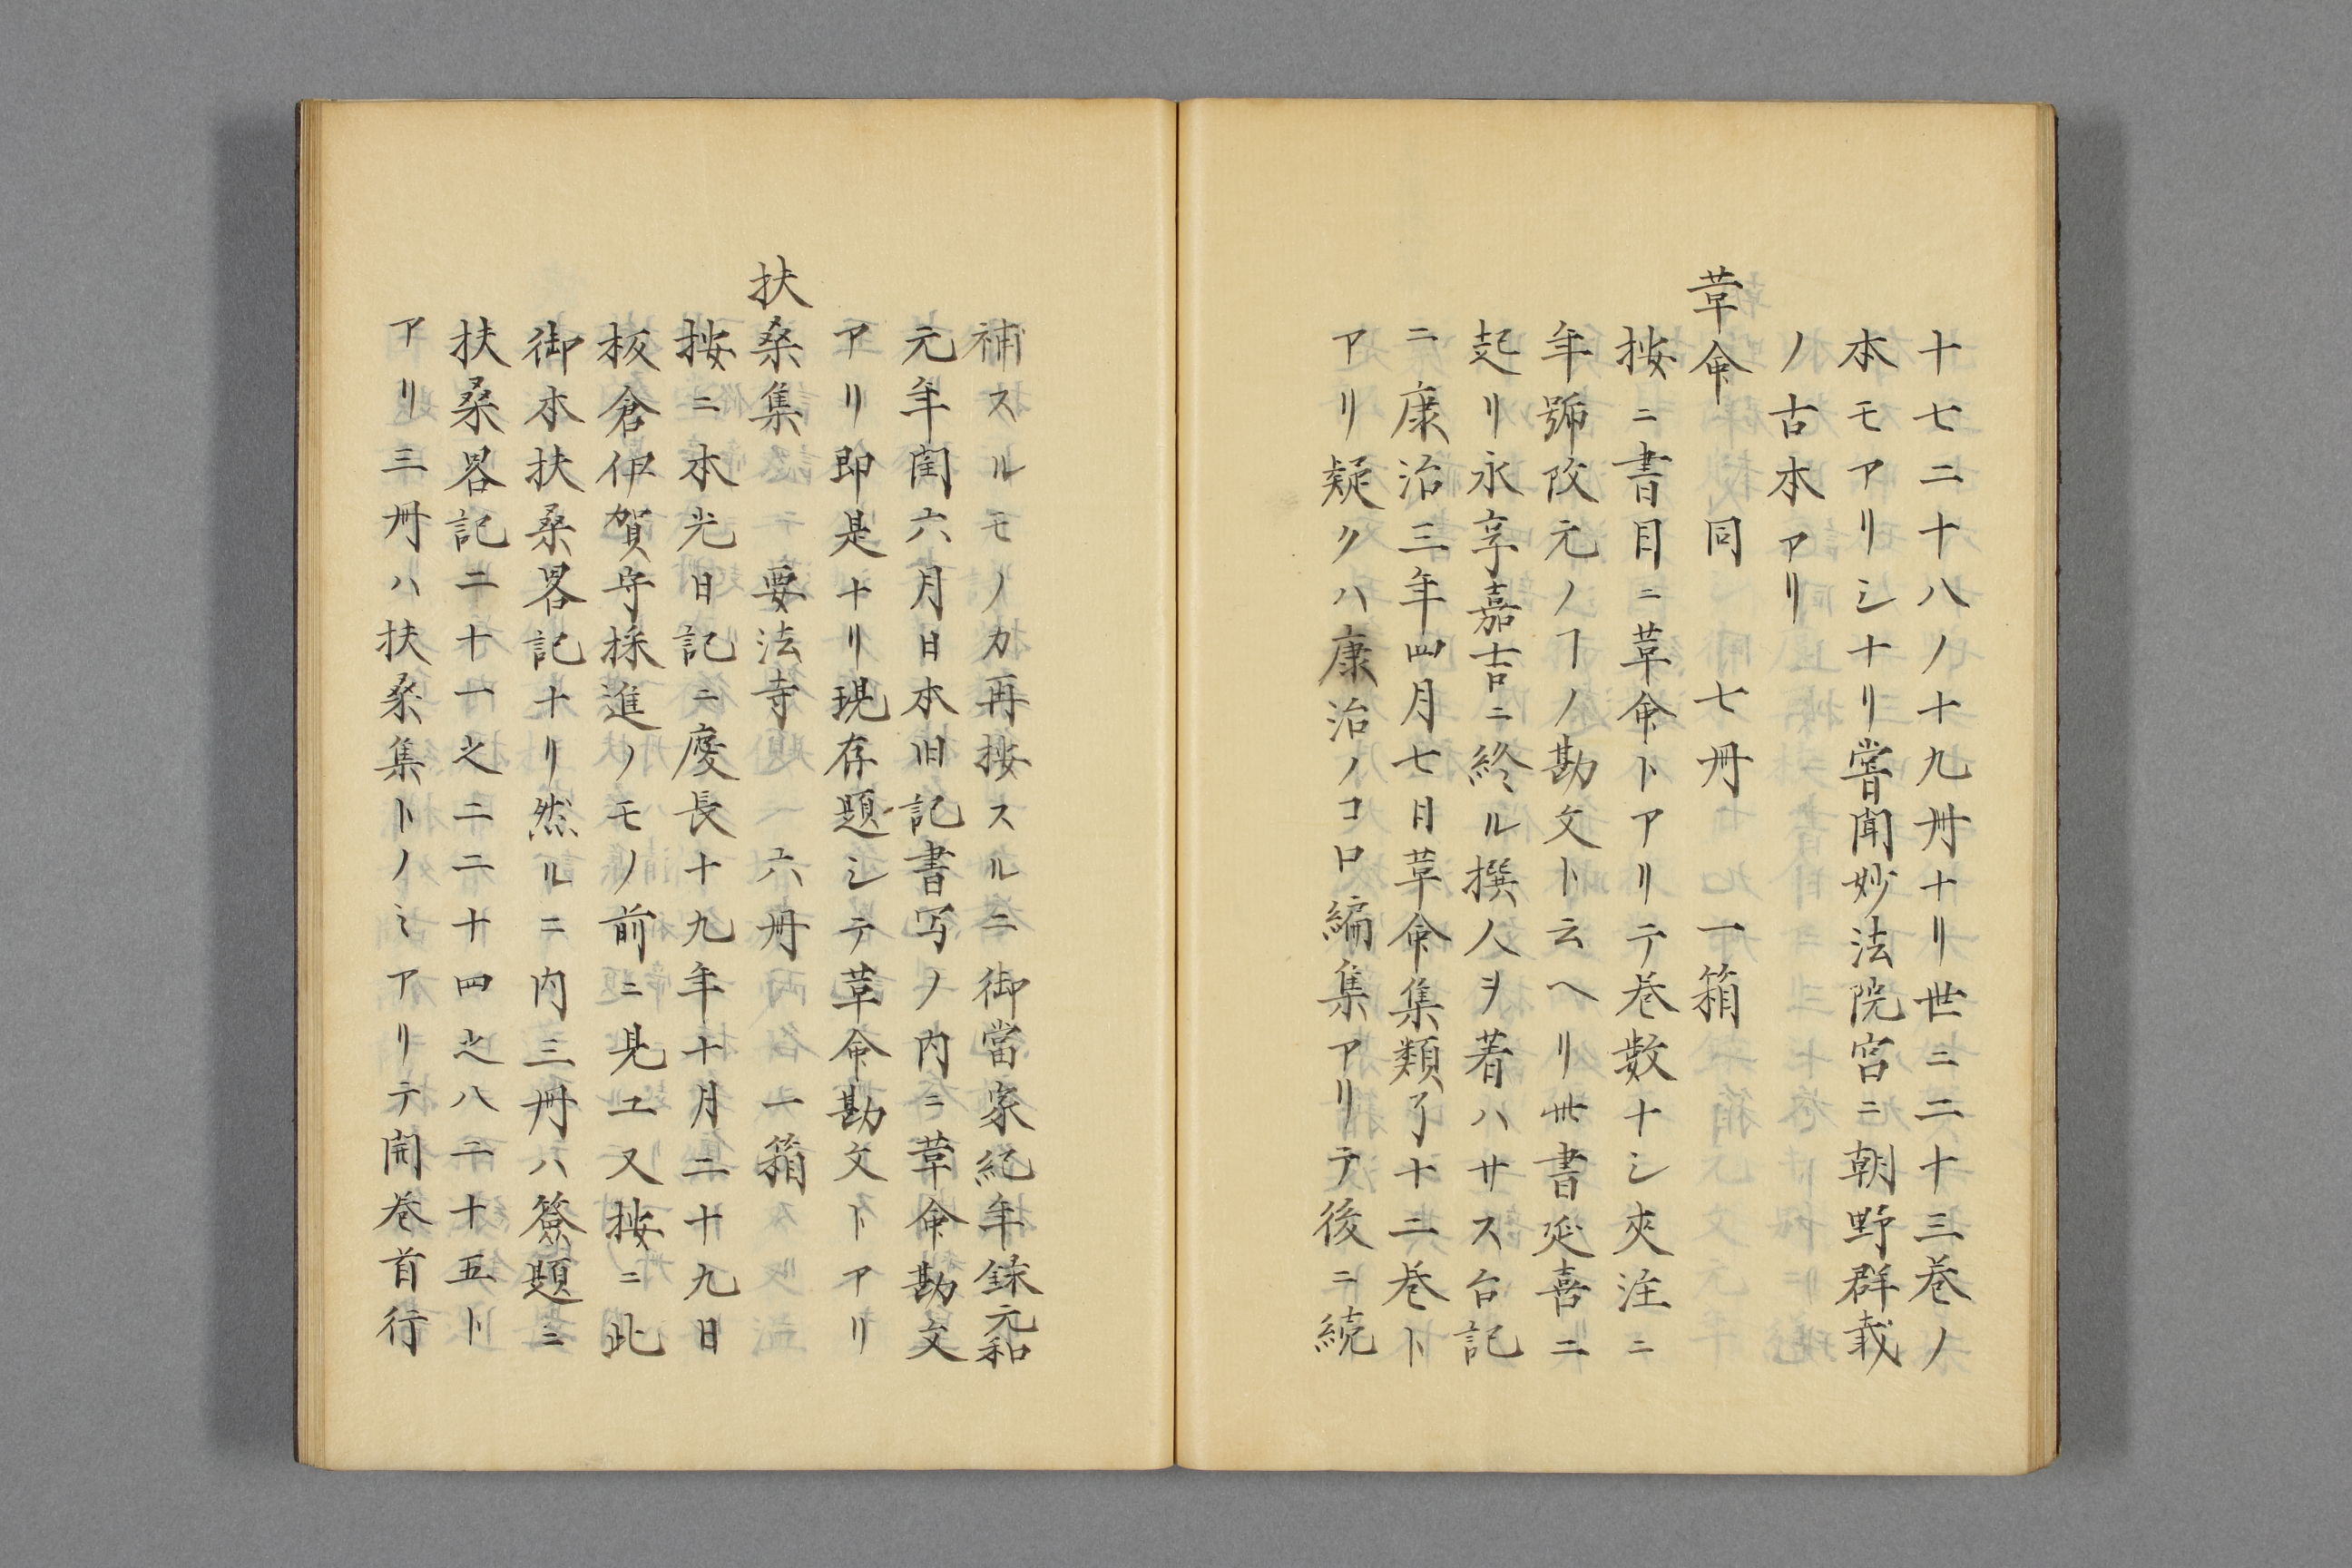 十七二十八ノ十九冊ナリ世ニ二十三巻ノ
本モアリシナリ嘗聞妙法院宮ニ朝野群載
ノ古本アリ
革命　同　七冊　一箱
按ニ書目ニ革命トアリテ巻数ナシ夾注ニ
年號改元ノヿノ勘文ト云ヘリ此書延喜ニ
起リ永享嘉吉ニ終ル撰人ヲ著ハサス台記
ニ康治三年四月七日革命集類了十二巻ト
アリ疑クハ康治ノコロ編集アリテ後ニ続
補スルモノカ再按スルニ御當家紀年録元和
元年閏六月日本旧記書写ノ内ニ革命勘文
アリ即是ナリ現存題シテ革命勘文トアリ
扶桑集　要法寺　六冊　一箱
按ニ本光日記ニ慶長十九年十月二十九日
板倉伊賀守採進ノモノ前ニ見ユ又按ニ此
御本扶桑畧記ナリ然ルニ内三冊ハ簽題ニ
扶桑畧記二十一之二二十四之八二十五ト
アリ三冊ハ扶桑集トノミアリテ開巻首行